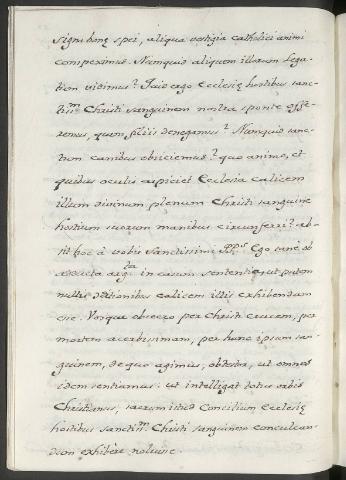 signu bonę spei, aliqua vestigia catholici animi
compeximus. Numquid aliquem illorum lega-
tion vidimus? Quis ergo Ecclesię hostibus sanc-
tiss.m Christi sanguinem nostra sponte offe-
remus, quem filiis denegamus? Numquid sanc-
tum canibus obiiciemus? quo animo, et
quibus oculis aspiciet Ecclesia calicem
illum divinum, plenum Christi sanguine
hostium suorum manibus circunferri? ab-
sit hoc à vobis Sanctissimi PP.s Ego sanè ob
adducta arg.ta in eam sententia, ut putem
nullis ditionibus calicem illis exhibendum
esse. Vosque obsecro per Christi crucem, per
mortem acerbissimam, per hunc ipsum san-
guinem, de quo agimus, obtestor, ut omnes
idem sentiamus: ut intelligat totus orbis
Christianus, sacrum istud Concilium Ecclesię
hostibus sanctiss.m Christi sanguinem conculcan-
dum exhibere noluisse.